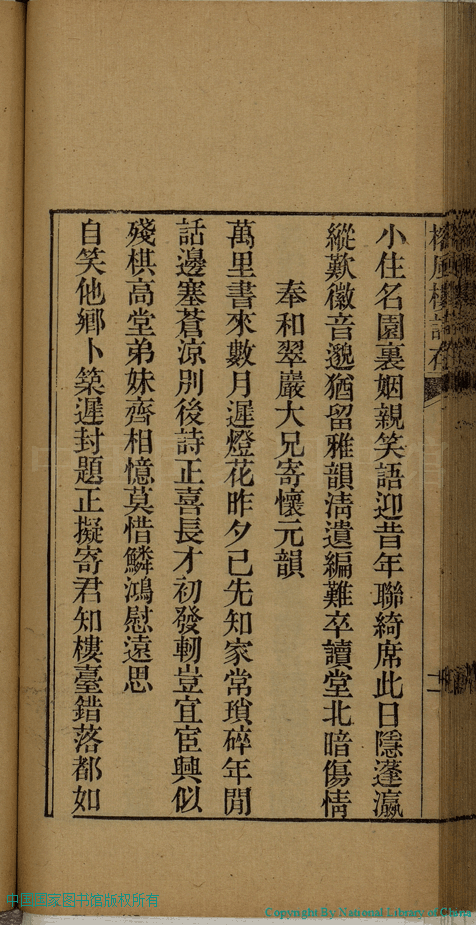 小住名園裏姻親笑語迎昔年聯綺席此日隱蓬瀛
縱歎徽音邈猶留雅韻淸遺編難卒讀堂北暗傷情
奉和翠巖大兄寄懷元韻
萬里書來數月遲燈花昨夕已先知家常瑣碎年閒
話邊塞蒼涼別後詩正喜長才初發軔豈宜宦興似
殘棋高堂弟妹齊相憶莫惜鱗鴻慰遠思
自笑他鄉卜築遲封題正擬寄君知樓臺錯落都如
中国国家图书馆版权所有
Copyright By National Library of China